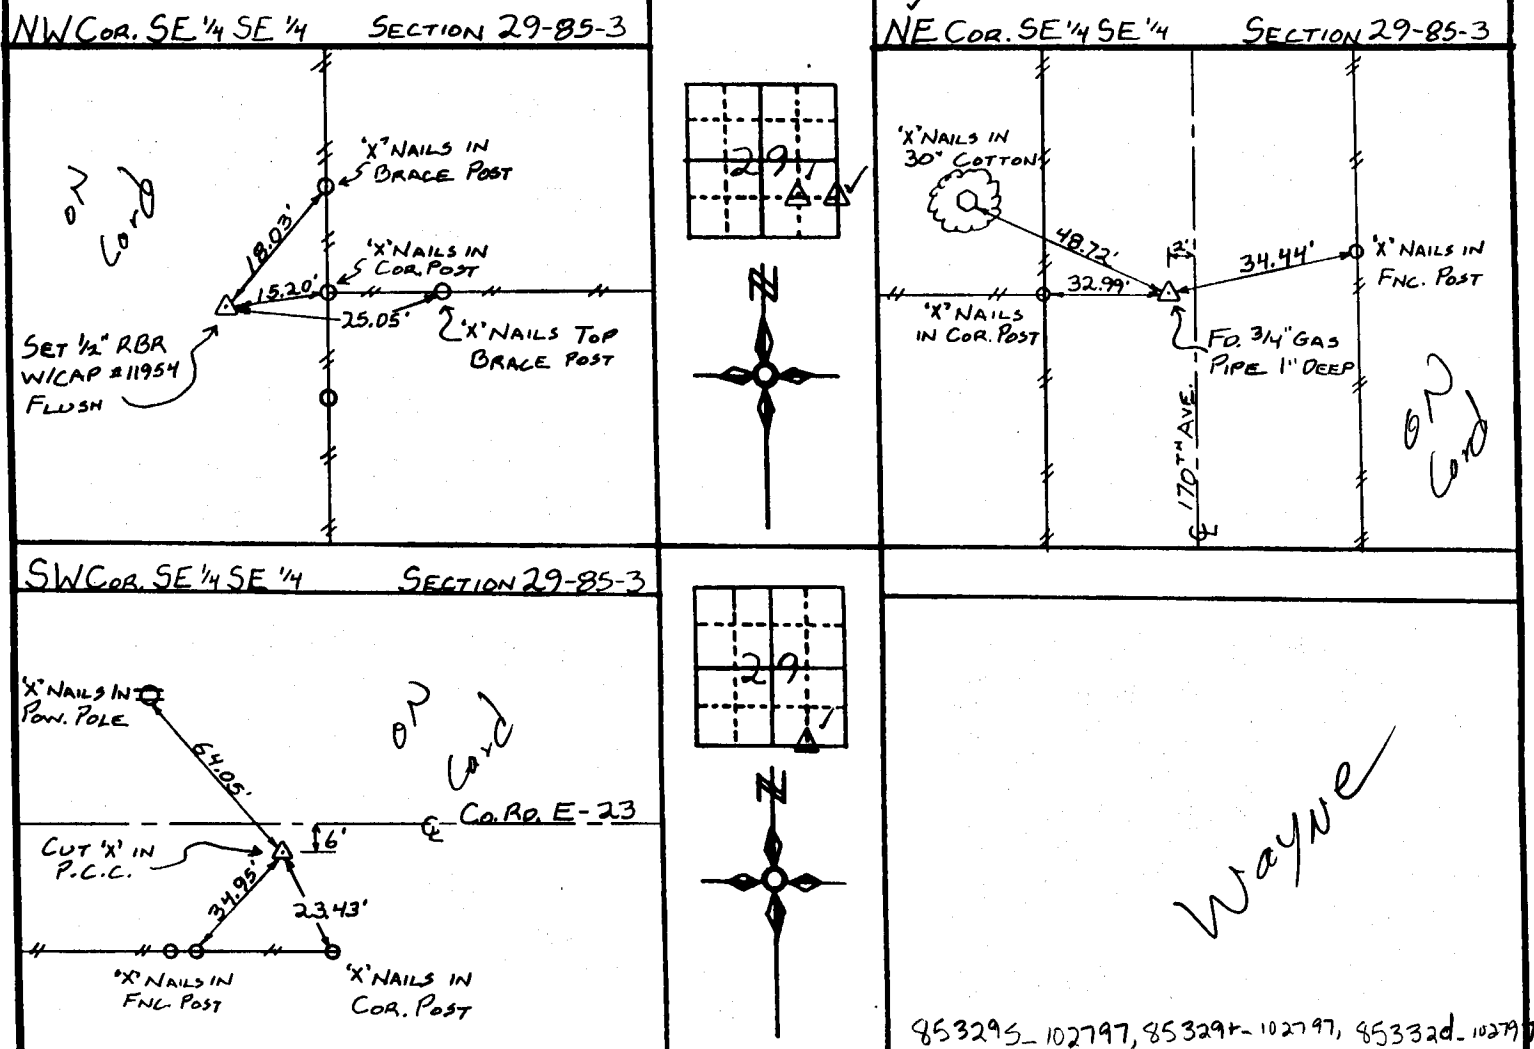 NW COR. SE 1/4 SE 1/4 SECTION 29-85-3
ON
Cord
"X" NAILS IN
BRACE POST
18.03'
"X" NAILS IN
COR. POST
15.20'
25.05'
"X" NAILS TOP
BRACE POST
SET 1/2" RBR
W/CAP #11954
FLUSH
29
N
NE COR. SE 1/4 SE 1/4 SECTION 29-85-3
"X" NAILS IN
30" COTTON
48.72'
2'
34.44'
"X" NAILS IN
FNC. POST
32.99'
"X" NAILS
IN COR. POST
FD. 3/4" GAS
PIPE 1" DEEP
170TH AVE.
℄
ON
Cord
SW COR. SE 1/4 SE 1/4 SECTION 29-85-3
"X" NAILS IN
POW. POLE
ON
Card
64.05'
℄ CO. RD. E-23
6'
CUT "X" IN
P.C.C.
34.95'
23.43'
"X" NAILS IN
FNC. POST
"X" NAILS IN
COR. POST
29
N
Wayne
85329s_102797, 85329r_102797, 85332d_102797